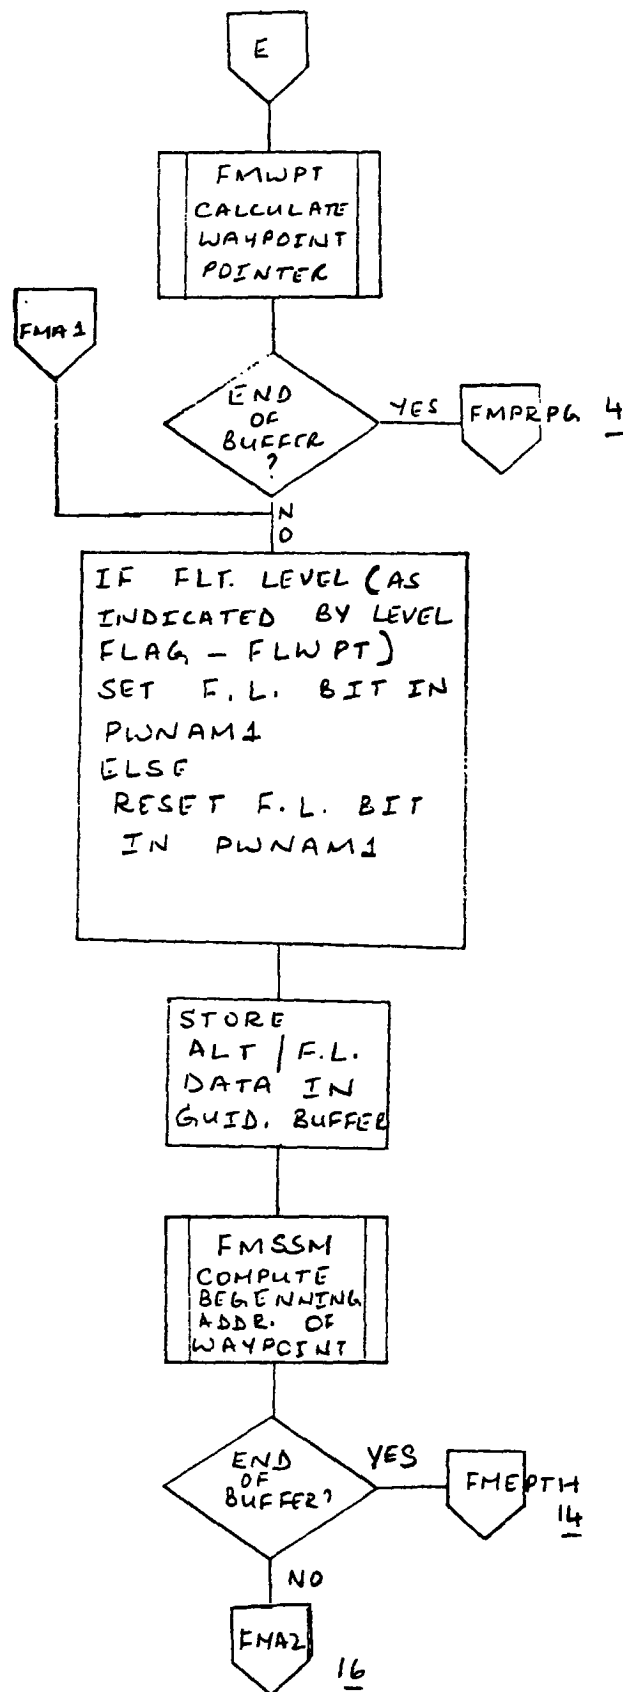 E
FMWPT
CALCULATE
WAYPOINT
POINTER
FMA1
END
OF
BUFFER
?
YES
FMPRPG 4
N
O
IF FLT. LEVEL (AS
INDICATED BY LEVEL
FLAG - FLWPT)
SET F.L. BIT IN
PWNAM1
ELSE
RESET F.L. BIT
IN PWNAM1
STORE
ALT / F.L.
DATA IN
GUID. BUFFER
FMSSM
COMPUTE
BEGINNING
ADDR. OF
WAYPOINT
END
OF
BUFFER?
YES
FMEPTH
14
NO
FMA2
16